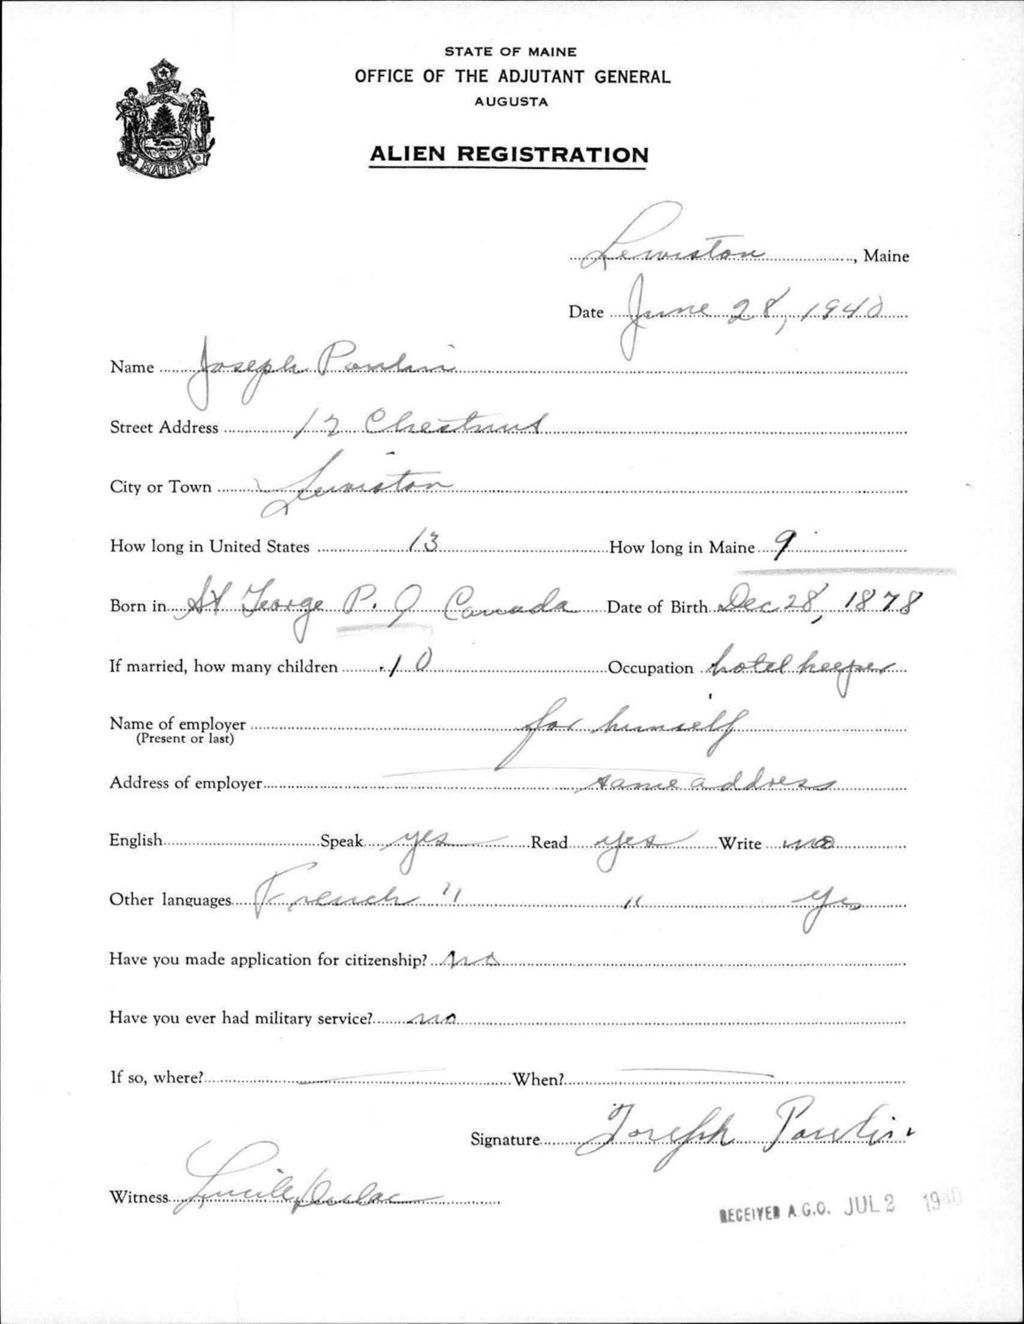 STATE OF MAINE
OFFICE OF THE ADJUTANT GENERAL
AUGUSTA
ALIEN REGISTRATION
MAINE
Lewiston, Maine
Date June 28, 1940
Name Joseph Poulin
Street Address 12 Chestnut
City or Town Lewiston
How long in United States 13 How long in Maine 9
Born in St George P. Q Canada Date of Birth Dec 28, 1878
If married, how many children 10 Occupation hotel keeper
Name of employer for himself
(Present or last)
Address of employer same address
English Speak yes Read yes Write no
Other languages French " " Yes
Have you made application for citizenship? no
Have you ever had military service? no
If so, where? When?
Signature Joseph Poulin
Witness Lucille Dulac
RECEIVED A.G.O. JUL 2 1940